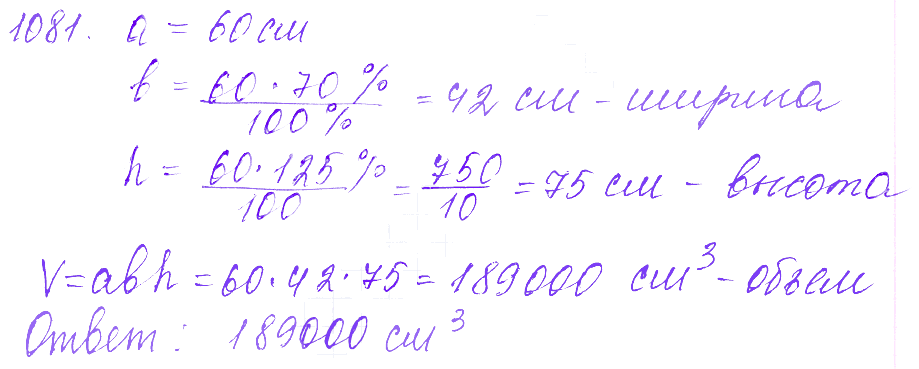 1081. a = 60 см
b = 60 · 70 % / 100 % = 42 см - ширина
h = 60 · 125 % / 100 = 750 / 10 = 75 см - высота
V = abh = 60 · 42 · 75 = 189000 см³ - объем
Ответ: 189000 см³